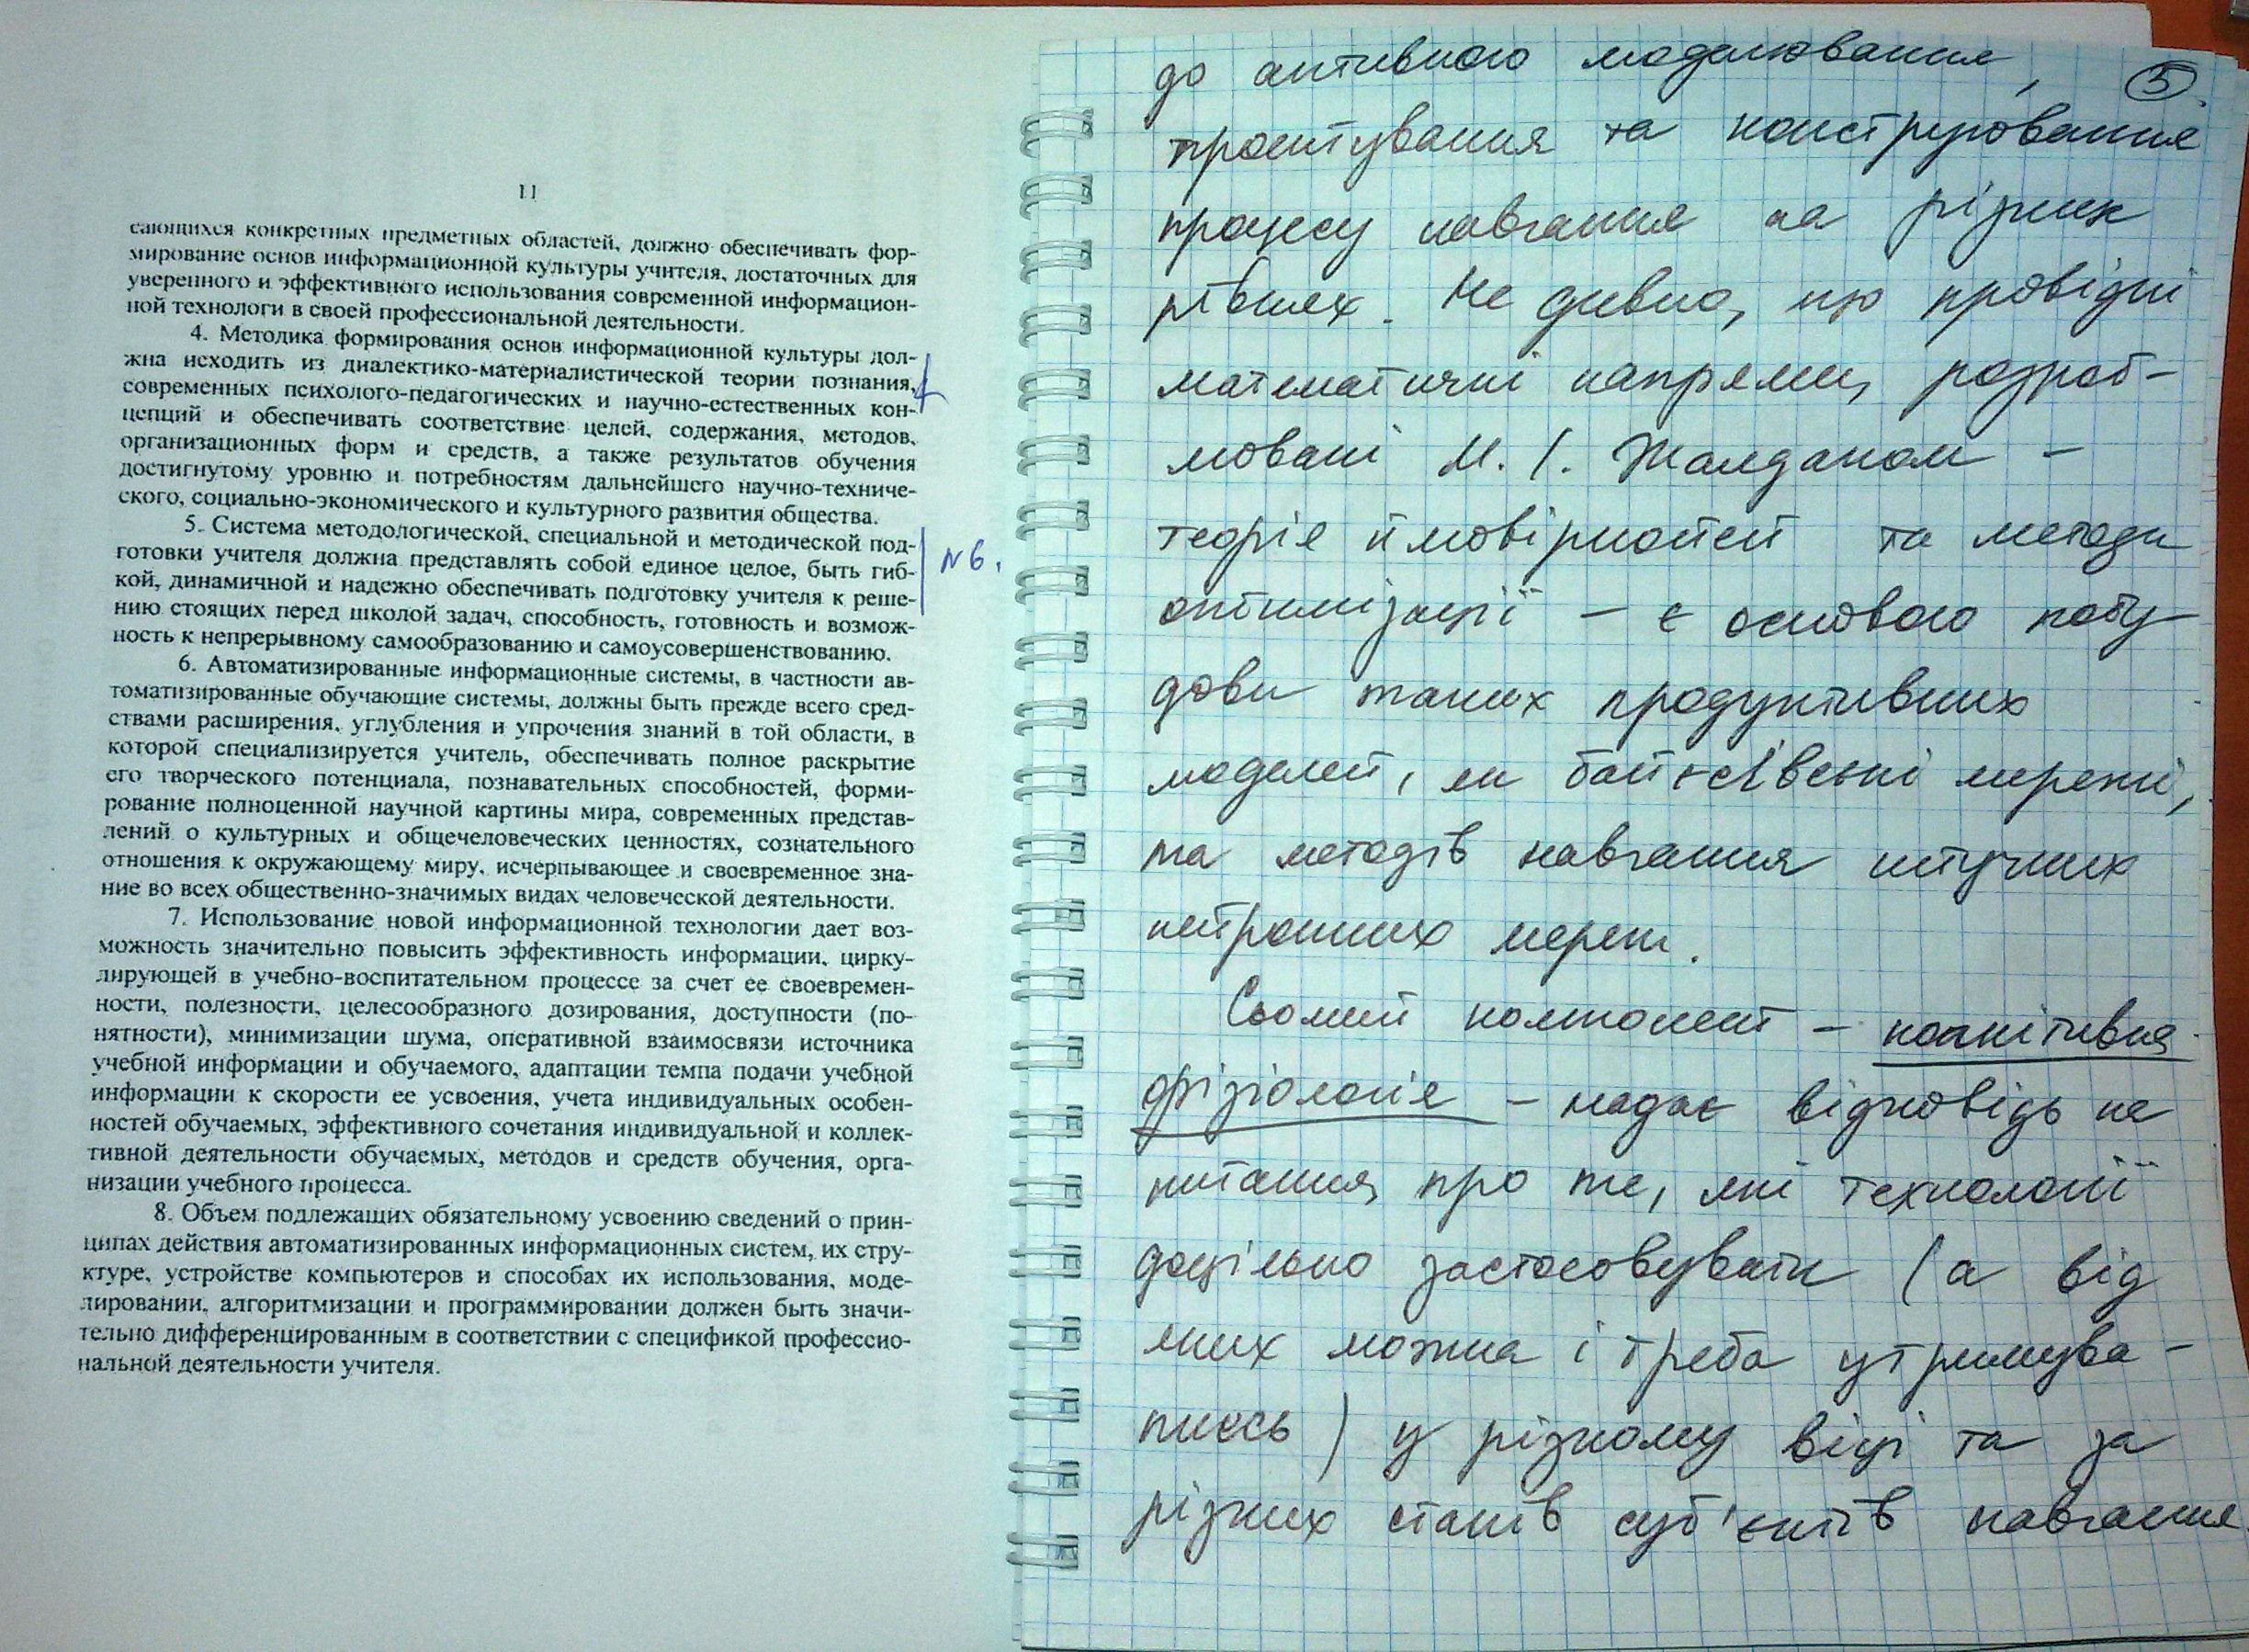 11
сающихся конкретных предметных областей, должно обеспечивать фор-
мирование основ информационной культуры учителя, достаточных для
уверенного и эффективного использования современной информацион-
ной технологи в своей профессиональной деятельности.
4. Методика формирования основ информационной культуры дол-
жна исходить из диалектико-материалистической теории познания,
современных психолого-педагогических и научно-естественных кон-
цепций и обеспечивать соответствие целей, содержания, методов,
организационных форм и средств, а также результатов обучения
достигнутому уровню и потребностям дальнейшего научно-техниче-
ского, социально-экономического и культурного развития общества.
5. Система методологической, специальной и методической под-
готовки учителя должна представлять собой единое целое, быть гиб-
кой, динамичной и надежно обеспечивать подготовку учителя к реше-
нию стоящих перед школой задач, способность, готовность и возмож-
ность к непрерывному самообразованию и самоусовершенствованию.
6. Автоматизированные информационные системы, в частности ав-
томатизированные обучающие системы, должны быть прежде всего сред-
ствами расширения, углубления и упрочения знаний в той области, в
которой специализируется учитель, обеспечивать полное раскрытие
его творческого потенциала, познавательных способностей, форми-
рование полноценной научной картины мира, современных представ-
лений о культурных и общечеловеческих ценностях, сознательного
отношения к окружающему миру, исчерпывающее и своевременное зна-
ние во всех общественно-значимых видах человеческой деятельности.
7. Использование новой информационной технологии дает воз-
можность значительно повысить эффективность информации, цирку-
лирующей в учебно-воспитательном процессе за счет ее своевремен-
ности, полезности, целесообразного дозирования, доступности (по-
нятности), минимизации шума, оперативной взаимосвязи источника
учебной информации и обучаемого, адаптации темпа подачи учебной
информации к скорости ее усвоения, учета индивидуальных особен-
ностей обучаемых, эффективного сочетания индивидуальной и коллек-
тивной деятельности обучаемых, методов и средств обучения, орга-
низации учебного процесса.
8. Объем подлежащих обязательному усвоению сведений о прин-
ципах действия автоматизированных информационных систем, их стру-
ктуре, устройстве компьютеров и способах их использования, моде-
лировании, алгоритмизации и программировании должен быть значи-
тельно дифференцированным в соответствии с спецификой профессио-
нальной деятельности учителя.
N6.
5
до активного моделювання,
проектування та конструювання
процесу навчання на різних
рівнях. Не дивно, що провідні
математичні напрями, розроб-
лювані М. І. Жалдаком –
теорія ймовірностей та методи
оптимізації – є основою побу
дови таких продуктивних
моделей, як байєсівські мережі,
та методів навчання штучних
нейронних мереж.
Сьомий компонент – когнітивна
фізіологія – надає відповідь на
питання про те, які технології
доцільно застосовувати (а від
яких можна і треба утримува-
тись) у різному віці та за
різних станів суб'єктів навчання